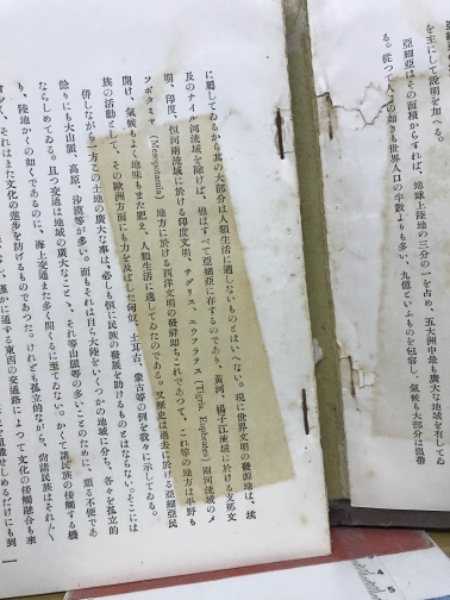 を主にして說明を加へる。
亞細亞はその面積からすれば、地球上陸地の三分の一を占め、五大洲中最も廣大な地域を有してゐ
る。從つて人口の如きも世界人口の半數よりも多い、九億といふものを包容し、氣候も大部分は溫帶
に屬してゐるから其の大部分は人類生活に適しないものとはいへない。現に世界文明の發源地は、埃
及のナイル河流域を除けば、他はすべて亞細亞に存するのであり、黃河、揚子江流域に於ける支那文
明、印度、恒河兩流域に於ける印度文明、チグリス、ユウフラテス (Tigris, Euphrates) 兩河流域のメ
ソポタミヤ (Mesopotamia) 地方に於ける西洋文明の發祥即ちこれであつて、これ等の地方は平野も
開け、氣候もよく地味もまた肥え、人類生活に適してゐたのである。又歷史は過去に於ける亞細亞民
族の活動として、その歐洲方面にも力を及ぼした匈奴、土耳古、蒙古等の例を我々に示してゐる。
併しながら一方との土地の廣大な事は、必しも恒に民族の發展を助けるものとはならない。そこには
餘りにも大山脈、高原、沙漠等が多い。而もそれは自ら大陸をいくつかの地域に分ち、各々を孤立的
ならしめてゐる。且つ交通は地域の廣大なことゝ、それ等山脈等の多いことのために、頗る不便であ
り、陸地かくの如くであるのに、海上交通また多く開くるに至てゐない。かくて諸民族の接觸する機
それはまた文化の進步を防げるものであつた。けれども孤立的ながら、尙諸民族はそれ〲
に通ずる東西の交通路によつて文化の接觸融合も來
せしめるだけにも到